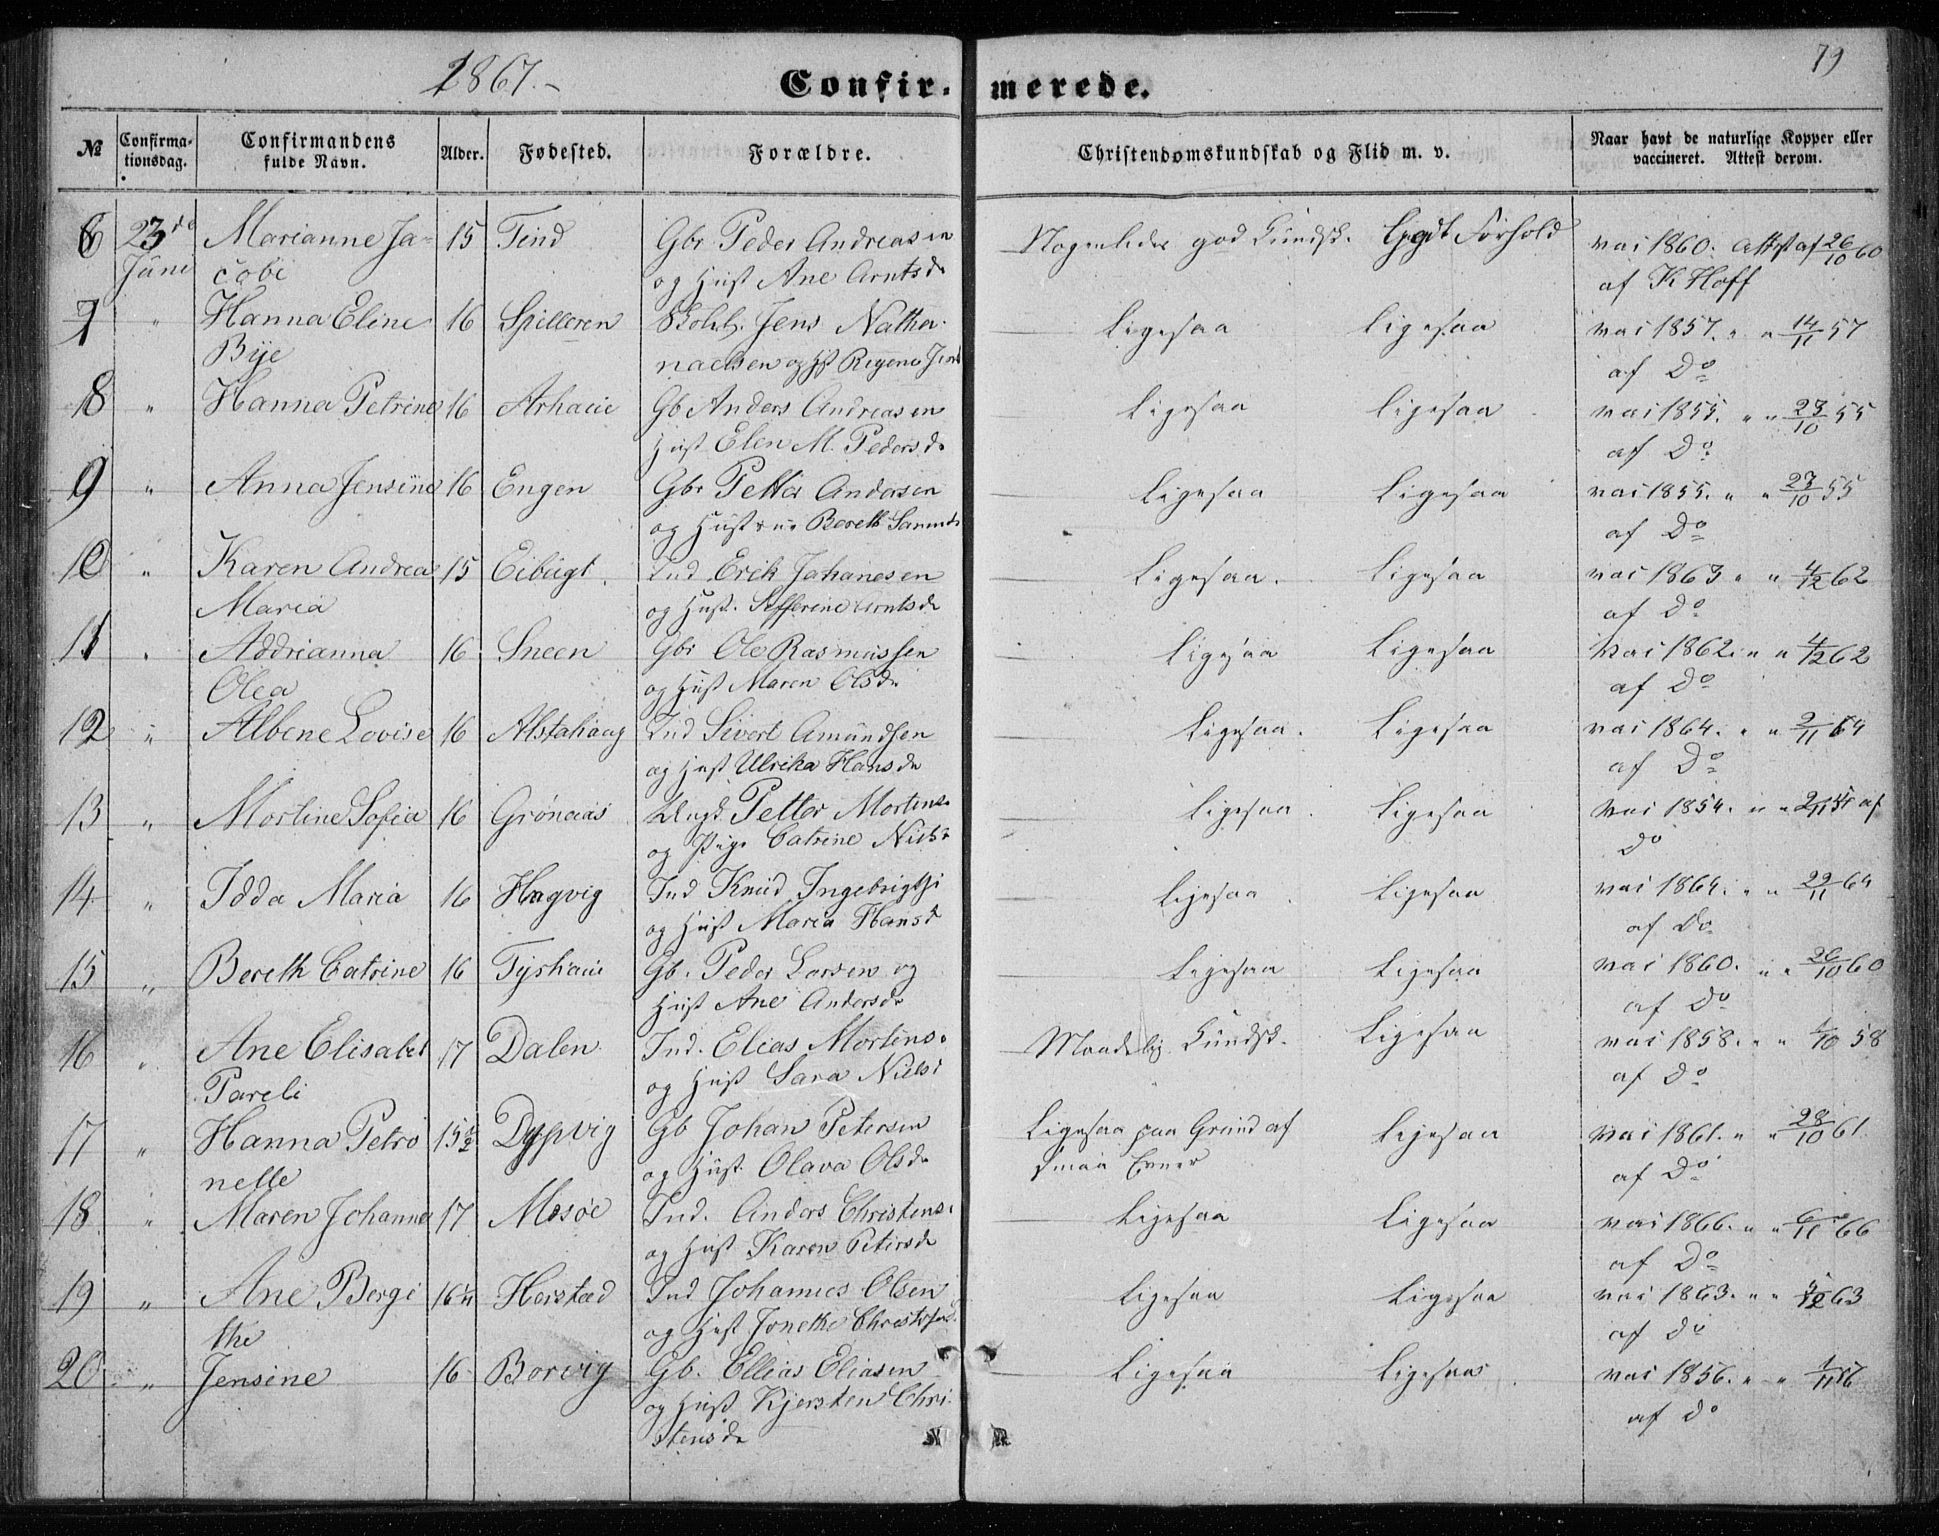 1867.-
Confir-
merede.
79
№
Confirma-
tionsdag.
Confirmandens
fulde Navn.
Alder.
Fødested.
Forældre.
Christendomskundskab og Flid m. v.
Naar havt de naturlige Kopper eller
vaccineret. Attest derom.
6 23de Marianne Ja- 15 Tind Gbr Peder Andreasen Nogenledes god Kundsk. Forhold vac 1860. Attest af 26/10 60
Juni cobi og Hust Ane Arntsd af K Hoff
7 " Hanna Eline 16 Spilleren Jens Natha- Ligesaa Ligesaa vac 1857. " " 14/11 57
Bye naelsen og Hst Regine af Do
8 " Hanna Petrine 16 Arhaue Gb Anders Andreasen Ligesaa Ligesaa vac 1855. " " 23/10 55
Hust Elen M. Pedersd. af Do
9 " Anna Jensine 16 Engen Gbr Petter Andersen Ligesaa Ligesaa vac 1855. " " 23/10 55
og Hustrue Bereth af Do
10 " Karen Andrea 15 Ind Erik Johanesen Ligesaa. Ligesaa vac 1863 " " 4/12 62
Maria og Hust. Arntsd af Do
11 " Addrianna 16 Sneen Gbr Ole Rasmussen Ligesaa Ligesaa Vac 1862. " " 4/12 62
Olea og Hust Maren Olsd. af Do
12 " Albene Lovise 16 Alstahaug Ind Sivert Amundsen Ligesaa. Ligesaa vac 1864. " " 2/11 64
og Hust Ulrika Hansd. af Do
13 " Mortine Sofia 16 Grønaas Ungk. Petter Mortens. Ligesaa. Ligesaa vac 1854. " " af
og Pige Catrine Nielsd do
14 " Idda Maria 16 Hagvig Ind Knud Ingebrigts Ligesaa. Ligesaa vac 1864. " " 29/11 64
og Hust Maria Hansd af Do
15 " Bereth Catrine 16 Tyshaue Gb. Peder Larsen og Ligesaa Ligesaa vac 1860. " " 26/10 60
Hust Ane Andersd. af Do
16 " Ane Elisabet 17 Dalen Ind. Elias Mortens. Maadelig Kundsk. Ligesaa vac 1858. " " 58
Pareli og Hust Sara Nielsd af Do
17 " Hanna Petro 15½ Dypvig Gb Johan Petersen Ligesaa paa Grund af Ligesaa vac 1861. " " 28/10 61.
nelle og Hust. Olava Olsd. smaa Evner af Do
18 " Maren Johanna 17 Mosøe Ind. Anders Christens. Ligesaa Ligesaa vac 1866. " " 6/11 66
og Hust Karen Petersd af Do
19 " Ane Bergi 16 Herstad Ind Johannes Olsen Ligesaa Ligesaa vac 1863. " " 63
the og Hust Jonetke af do
20 " Jensine 16 Borvig Gb. Ellias Eliasen Ligesaa Ligesaa vac 1856. " "
og Hust Kjersten Chri- af do
stensd.